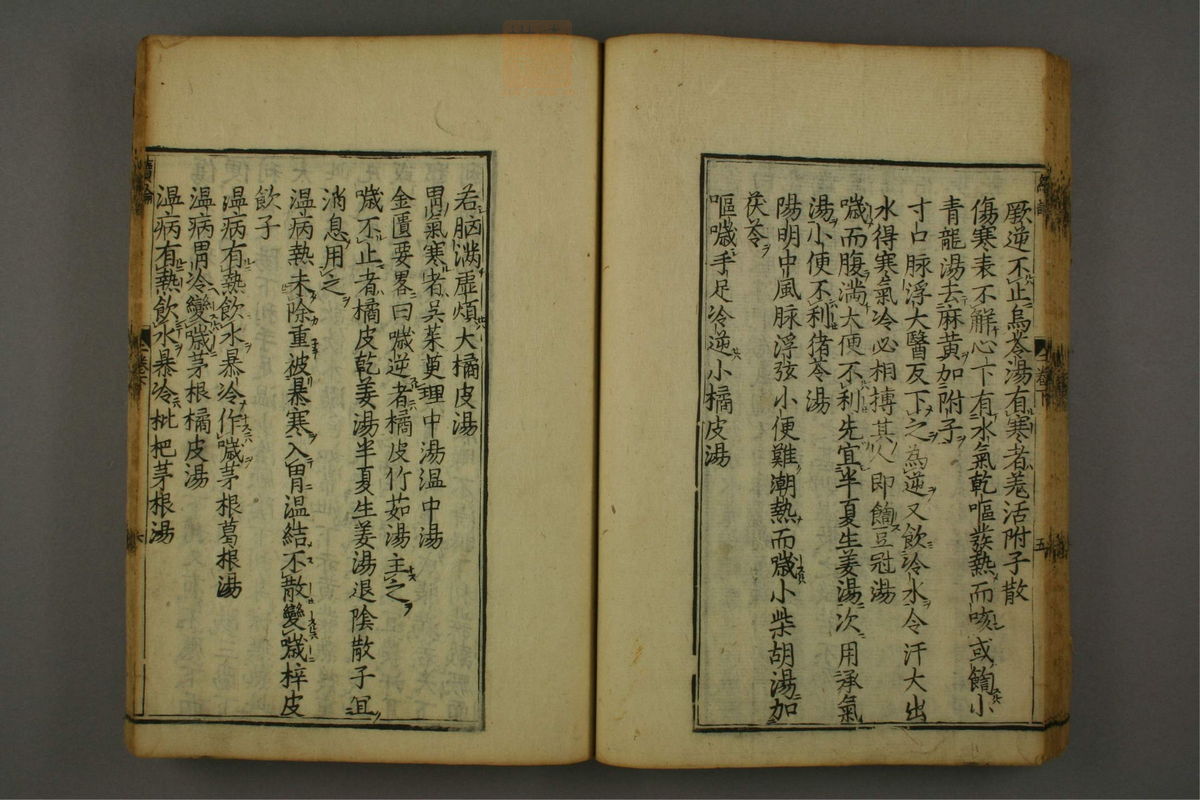 厥逆不止烏苓湯有寒者羌活附子散
傷寒表不解心下有水氣乾嘔發熱而咳或饐小
青龍湯去麻黃加附子
寸口脉浮大醫反下之為逆又飲冷水令汗大出
水得寒氣冷必相搏其人即饐豆冠湯
噦而腹滿大便不利先宜半夏生姜湯次用承氣
湯小便不利猪苓湯
陽明中風脉浮弦小便難潮熱而噦小柴胡湯加
茯苓
嘔噦手足冷逆小橘皮湯
卷下
五
若脑满虛煩大橘皮湯
胃氣寒者吳茱萸理中湯温中湯
金匱要畧曰噦逆者橘皮竹茹湯主之
噦不止者橘皮乾姜湯半夏生姜湯退陰散子宜
消息用之
温病熱未除重被暴寒入胃温結不散變噦梓皮
飲子
温病有熱飲水暴冷作噦茅根葛根湯
温病胃冷變噦茅根橘皮湯
温病有熱飲水暴冷枇杷茅根湯
續論
卷下
六